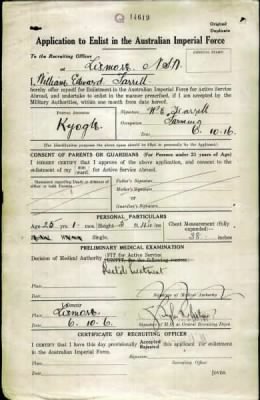 14619
Original
Duplicate
Application to Enlist in the Australian Imperial Force
To the Recruiting Officer
at Lismore NSW
I, William Edward Farrell
hereby offer myself for Enlistment in the Australian Imperial Force for Active Service
Abroad, and undertake to enlist in the manner prescribed, if I am accepted by the
Military Authorities, within one month from date hereof.
Postal Address
Kyogle
Signature W. E. Farrell
Occupation Farming
6.10.16
CONSENT OF PARENTS OR GUARDIANS (For Persons under 21 years of Age)
I certify that I approve of the above application, and consent to the
enlistment of my son ward for Active Service Abroad.
Father's Signature
Mother's Signature
or
Guardian's Signature
PERSONAL PARTICULARS
Age 25 yrs. 1 mos. Height 5 ft. ins
Chest Measurement (fully
expanded)
38 inches
PRELIMINARY MEDICAL EXAMINATION
Decision of Medical Authority
FIT for Active Service
UNFIT for the following reason
Place
Date
Signature of Medical Authority
Lismore
6.10.6
CERTIFICATE OF RECRUITING OFFICER
I CERTIFY that I have this day provisionally Accepted Rejected this applicant for enlistment
in the Australian Imperial Force.
Place
Date
Recruiting Officer
[OVER